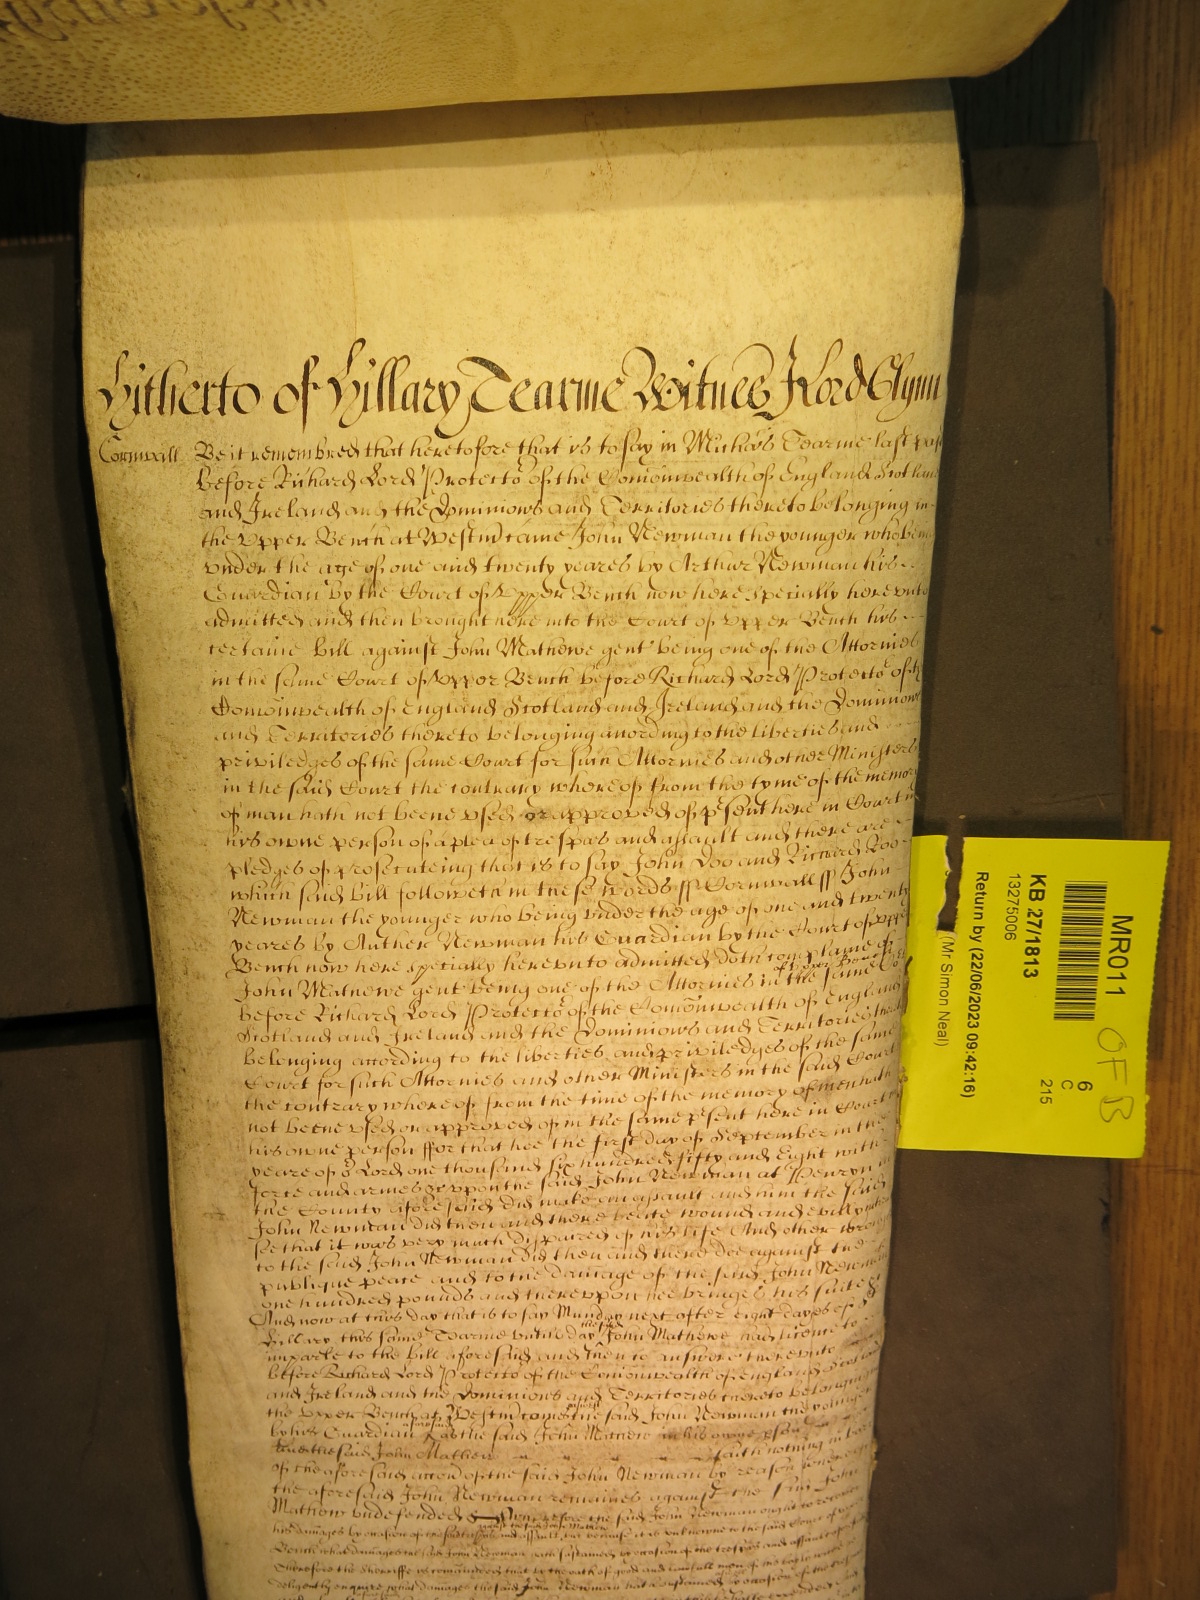 Hitherto of Hillary Tearme Witnes J Lord Glynn
Cornwall Be it remembred that heretofore that is to say in Mich'is Tearme last past
before Richard Lord Protector of the Comonwealth of England Scotland
and Ireland and the Dominions and Territories thereto belonging in
the Upper Bench at Westm' came John Newman the younger who being
under the age of one and twenty yeares by Arthur Newman his
Guardian by the Court of Upper Bench now here specially hereunto
admitted and then brought here into the Court of Upper Bench his
certaine bill against John Mathewe gent' being one of the Attornies
in the same Court of Upper Bench before Richard Lord Protector of the
Comonwealth of England Scotland and Ireland and the Dominions
and Territories thereto belonging according to the liberties and
priviledges of the same Court for such Attornies and other Ministers
in the said Court the contrary whereof from the tyme of the memory
of man hath not beene used or approved of p'sent here in Court in
his owne person of a plea of trespas and assault and there are
pledges of prosecuteing that is to say John Doo and Richard Roo
which said bill followeth in these words ss Cornwall ss John
Newman the younger who being under the age of one and twenty
yeares by Arther Newman his Guardian by the Court of Upper
Bench now here specially hereunto admitted doth complaine of
John Mathewe gent being one of the Attornies in the same Court of Upper Bench
before Richard Lord Protector of the Comonwealth of England
Scotland and Ireland and the Dominions and Territories thereto
belonging according to the liberties and priviledges of the same
Court for such Attornies and other Ministers in the said Court
the contrary whereof from the time of the memory of man hath
not beene used or approved of in the same p'sent here in Court in
his owne person ffor that hee the first day of September in the
yeare of o'r Lord one thousand six hundred fifty and Eight with
force and armes &c upon the said John Newman at Penryn in
the County aforesaid did make an assault and him the said
John Newman did then and there beate wound and evilly intreat
soe that it was very much dispaired of his life And other wrongs
to the said John Newman did then and there doe against the
publique peace and to the damage of the said John Newman
one hundred pounds and thereupon hee bringeth his suite &c
And now at this day that is to say Munday next after eight dayes of St
Hillary this same Tearme untill w'ch day the said John Mathewe had licence to
imparle to the bill aforesaid and then to answere thereunto
before Richard Lord Protector of the Comonwealth of England Scotland
and Ireland and the Dominions and Territories thereto belonging in
the Upper Bench at Westm' come aswell the said John Newman the younger
by his Guardian aforesaid as the said John Mathew in his owne p'son
And the said John Mathew saith nothing in barr
of the aforesaid accion of the said John Newman by reason whereof
the aforesaid John Newman remaines against the said John
Mathew undefended Wherefore the said John Newman ought to recover
against the said John Mathew
his damages by occasion of the trespas and assault but because it is unknowne to the said Court of Upper
Bench what damages the said John Newman hath sustained by occasion of the trespas and assault
Therefore the Sherriffe is comanded that by the oath of good and lawfull men of his bayliwick
diligently enquire what damages the said John Newman hath sustained by occasion of the
MR011
KB 27/1813
13275006
6
C
215
Return by (22/06/2023 09:42:16)
(Mr Simon Neal)
OF B